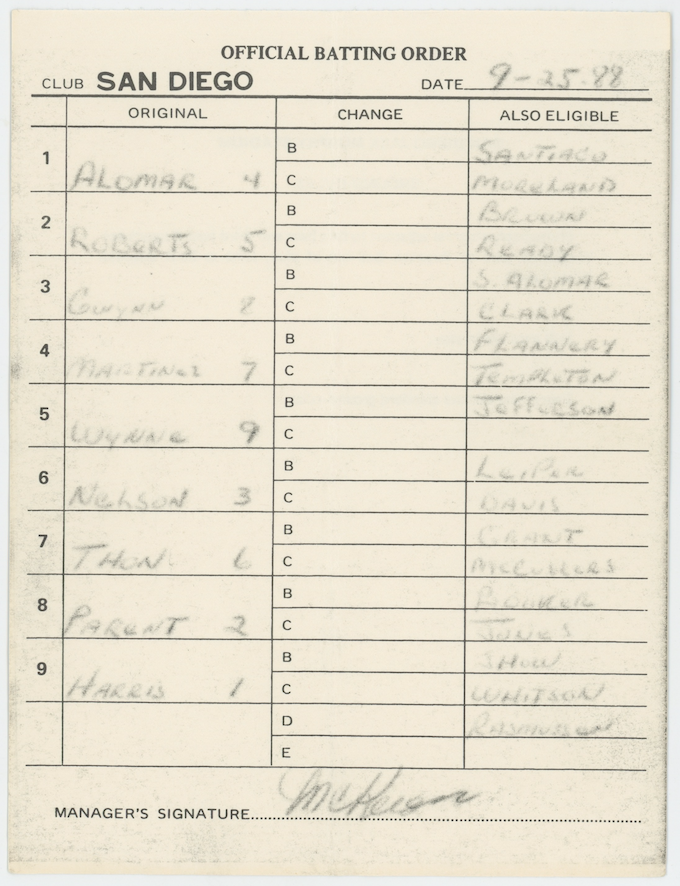 OFFICIAL BATTING ORDER
CLUB SAN DIEGO DATE 9-25-88
ORIGINAL CHANGE ALSO ELIGIBLE
1 ALOMAR 4 B SANTIAGO
C MORELAND
2 ROBERTS 5 B BROWN
C READY
3 GWYNN 8 B S. ALOMAR
C CLARK
4 MARTINEZ 7 B FLANNERY
C TEMPLETON
5 WYNNE 9 B JEFFERSON
C
6 NELSON 3 B LEIPER
C DAVIS
7 THON 6 B GRANT
C MCCULLERS
8 PARENT 2 B BOOKER
C JONES
9 HARRIS 1 B SHOW
C WHITSON
D RASMUSSEN
E
MANAGER'S SIGNATURE McKeon